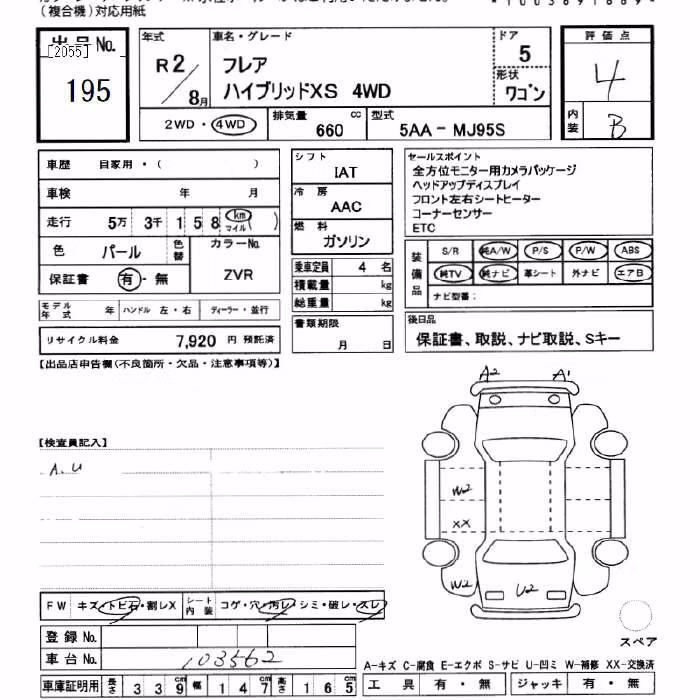 （複合機）対応用紙
*1003691669*
出品No.
[2055]
195
年式
R2／8月
車名・グレード
フレア
ハイブリッドXS 4WD
ドア
5
形状
ワゴン
評価点
4
内装
B
2WD・4WD
排気量
660 cc
型式
5AA－MJ95S
車歴 自家用・（ ）
車検 年 月
走行 5万 3千 1 5 8 km マイル（ ）
色 パール
色替
カラーNo.
ZVR
保証書 有・無
モデル年式 年
ハンドル 左・右
ディーラー・並行
リサイクル料金 7,920 円 預託済
シフト
IAT
冷房
AAC
燃料
ガソリン
乗車定員 4 名
積載量 kg
総重量 kg
書類期限
月 日
セールスポイント
全方位モニター用カメラパッケージ
ヘッドアップディスプレイ
フロント左右シートヒーター
コーナーセンサー
ETC
装備品
S/R 純A/W P/S P/W ABS
純TV 純ナビ 革シート 外ナビ エアB
ナビ型番：
後日品
保証書、取説、ナビ取説、Sキー
【出品店申告欄（不良箇所・欠品・注意事項等）】
【検査員記入】
A.U
A2 A1
W2
XX
W2
U2
スペア
FW キズ・トビ石・割レX
シート内装 コゲ・穴・汚レ・シミ・破レ・スレ
登録No.
車台No. 103562
車庫証明用 長さ 3 3 9 cm 幅 1 4 7 cm 高さ 1 6 5 cm
A-キズ C-腐食 E-エクボ S-サビ U-凹ミ W-補修 XX-交換済
工具 有・無 ジャッキ 有・無